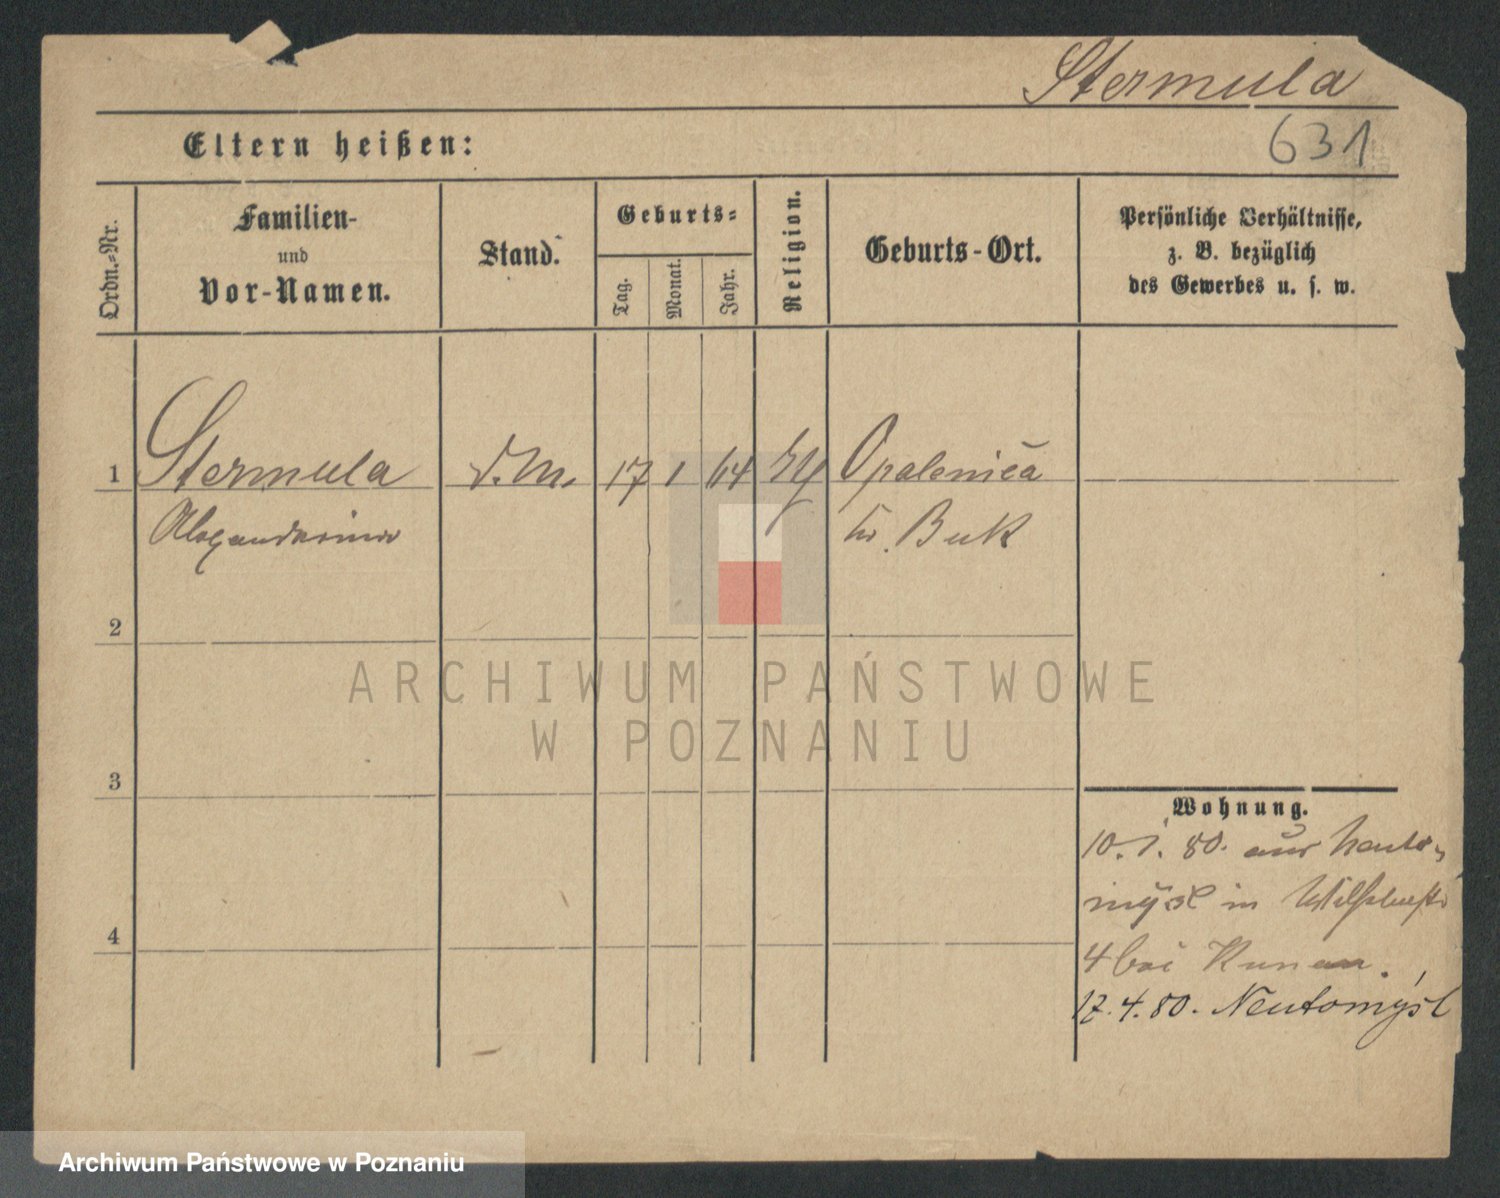 Stermula
631
Eltern heißen:
Ordn.-Nr.
Familien-
und
Vor-Namen.
Stand.
Geburts-
Tag.
Monat.
Jahr.
Religion.
Geburts-Ort.
Persönliche Verhältnisse,
z. B. bezüglich
des Gewerbes u. s. w.
1 Stermula d. M. 17 1 64 Opalenica
Buk
2
3
4
Wohnung.
10. 1. 80. aus Neuto-
mysl in
4 bei
17. 4. 80. Neutomysl
ARCHIWUM PAŃSTWOWE
W POZNANIU
Archiwum Państwowe w Poznaniu